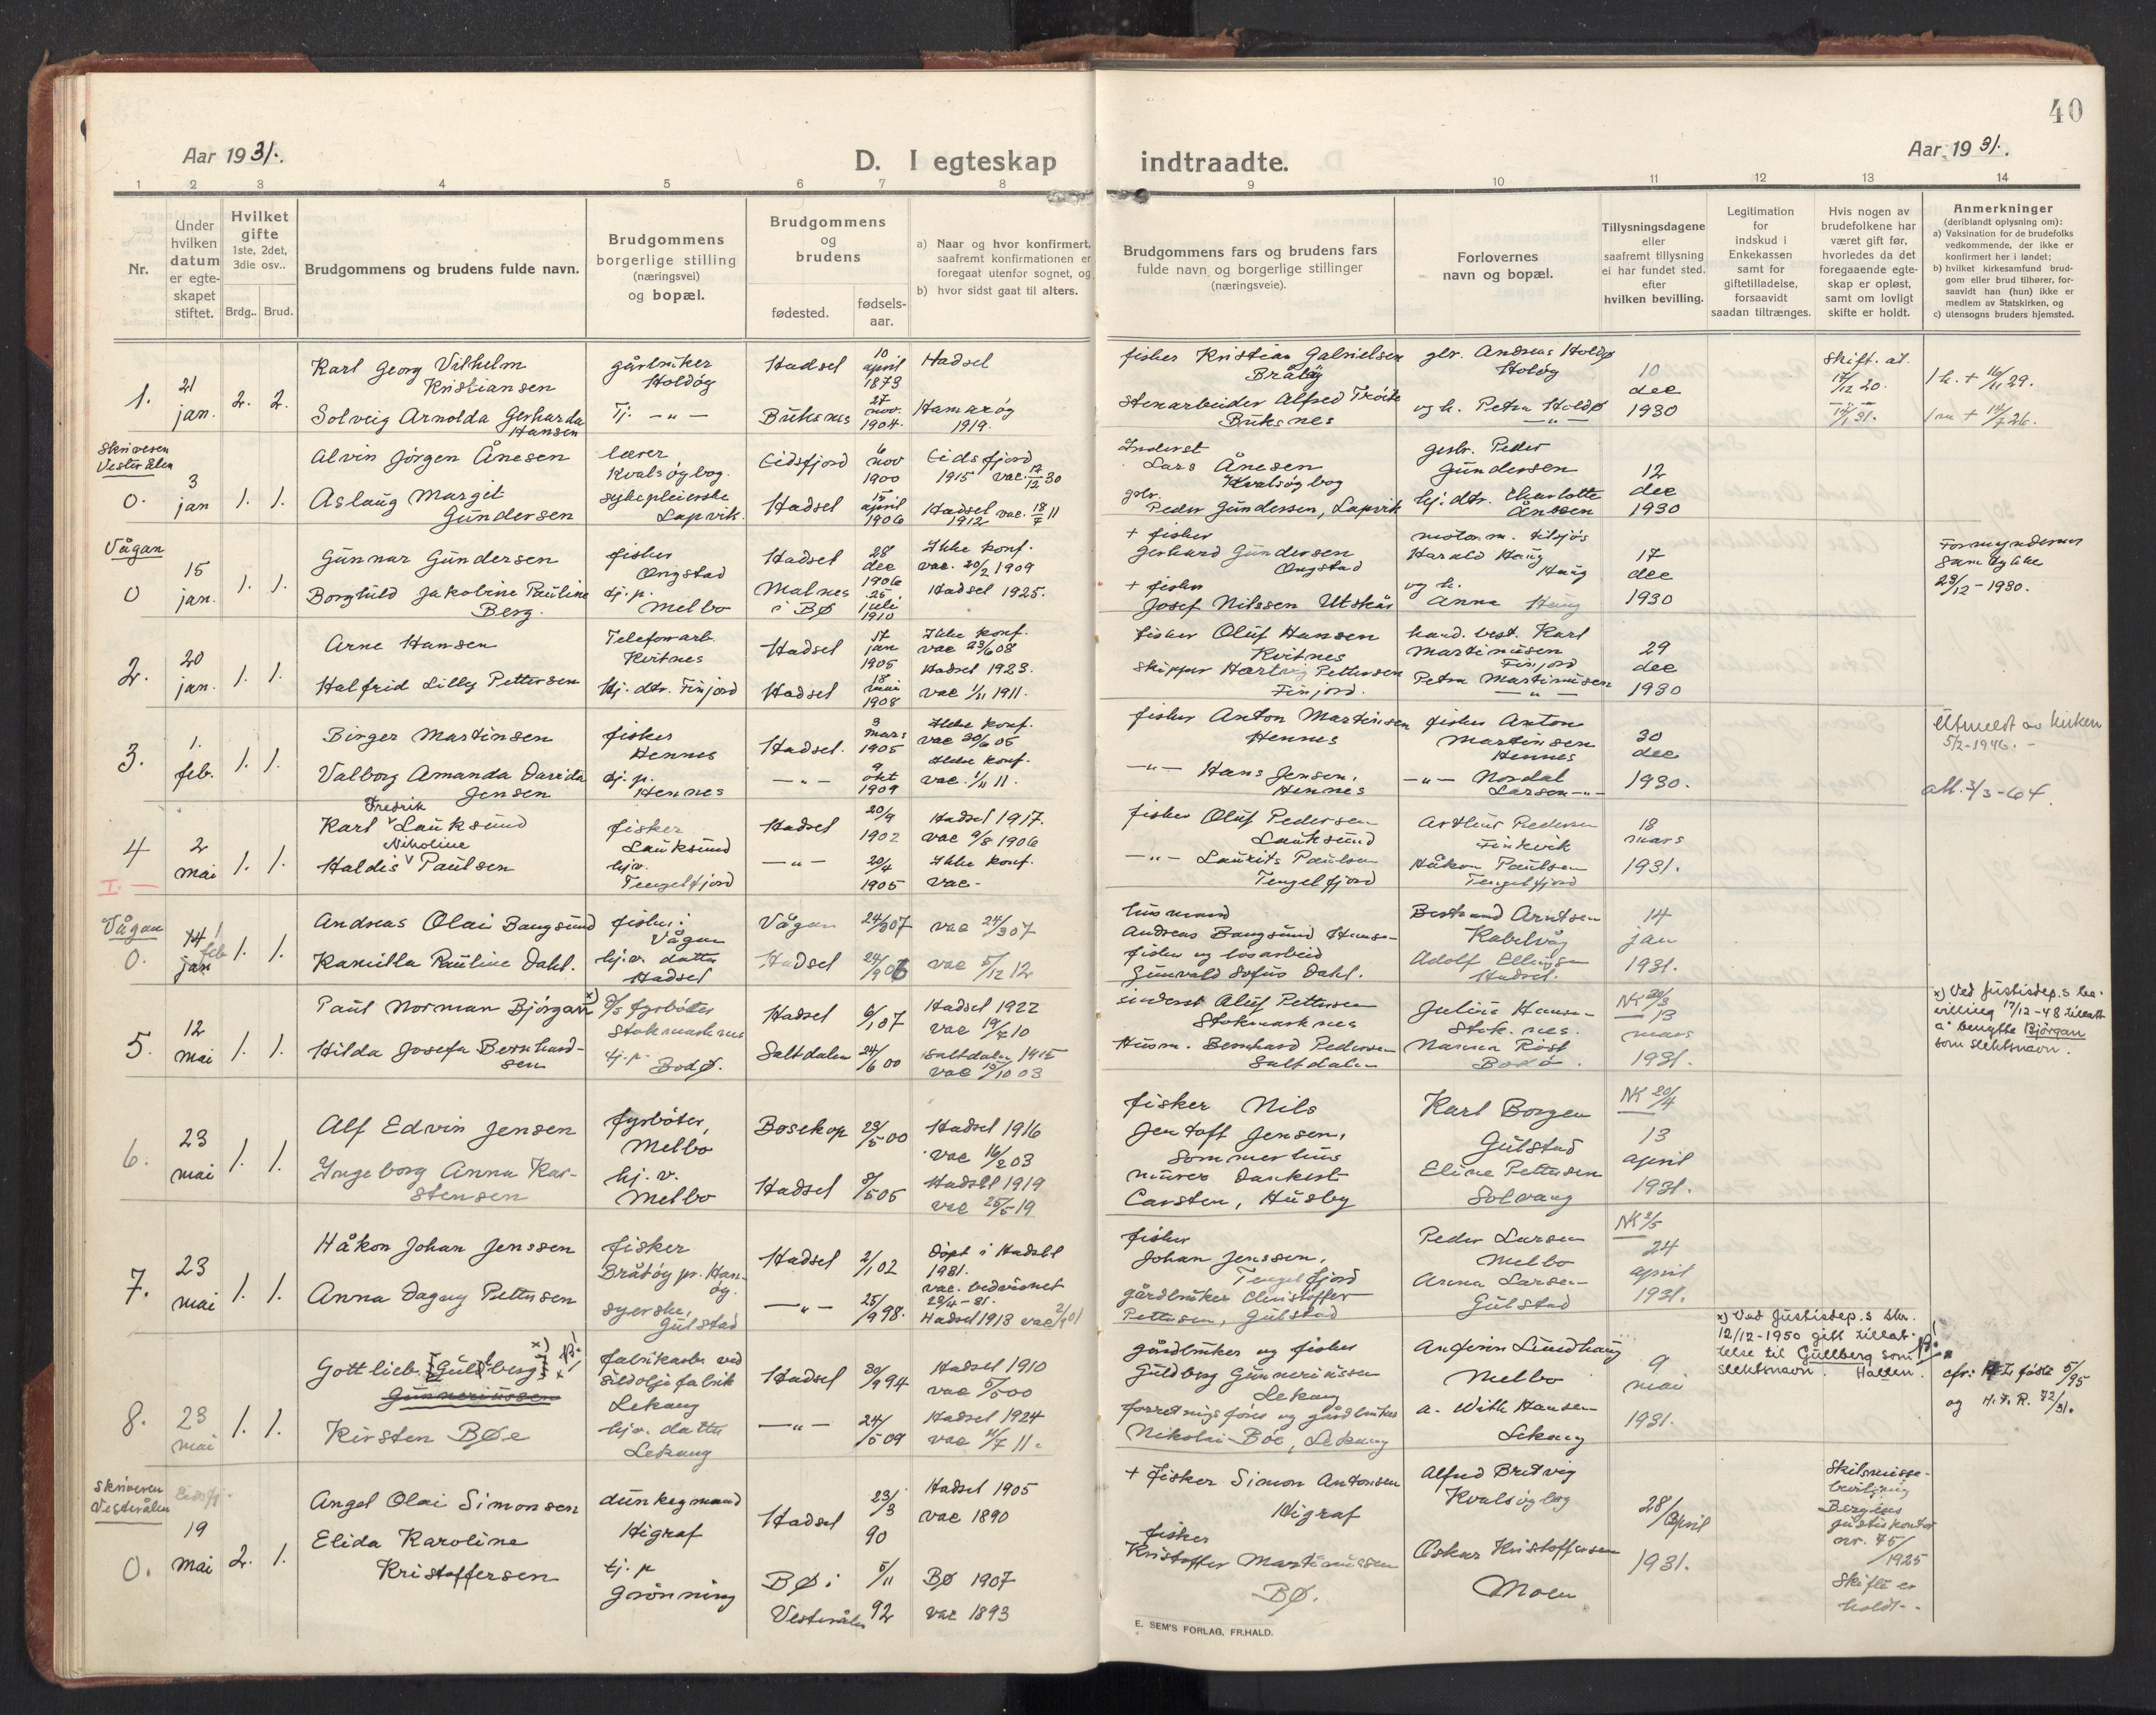 40
Aar 1931.
D. I egteskap
indtraadte.
Aar 1931.
1 2 3 4 5 6 7 8 9 10 11 12 13 14
Nr.
Under hvilken datum er egteskapet stiftet.
Hvilket gifte
1ste, 2det, 3die osv..
Brdg.. Brud.
Brudgommens og brudens fulde navn.
Brudgommens borgerlige stilling (næringsvei) og bopæl.
Brudgommens og brudens
fødested.
fødsels-aar.
a) Naar og hvor konfirmert, saafremt konfirmationen er foregaat utenfor sognet, og
b) hvor sidst gaat til alters.
Brudgommens fars og brudens fars fulde navn og borgerlige stillinger (næringsveie).
Forlovernes navn og bopæl.
Tillysningsdagene eller saafremt tillysning ei har fundet sted. efter hvilken bevilling.
Legitimation for indskud i Enkekassen samt for giftetilladelse, forsaavidt saadan tiltrænges.
Hvis nogen av brudefolkene har været gift før, hvorledes da det foregaaende egteskap er opløst, samt om lovligt skifte er holdt.
Anmerkninger
(deriblandt oplysning om):
a) Vaksination for de brudefolks vedkommende, der ikke er konfirmert her i landet;
b) hvilket kirkesamfund brudgom eller brud tilhører, forsaavidt han (hun) ikke er medlem av Statskirken, og
c) utensogns bruders hjemsted.
1. 21 jan. 2. 2.
Karl Georg Vilhelm Kristiansen
gårbruker Holdøy
Hadsel 10 april 1873 Hadsel
fisker Kristian Gabrielsen Bråtøy
gbr. Andreas Holdø Holøy
10 dec 1930
Skift. at. 17/12 20.
Solveig Arnolda Gerharda Hansen
Tj. -"-
Buksnes 27 nov. 1904. Hamarøy 1919.
Stenarbeider Alfred
Buksnes
og h. Petra Holdø -"-
14/1 31.
Skriveren Vesterålen
0. 3 jan 1. 1.
Alvin Jörgen Ånesen
lærer Kvalsøybog.
Eidsfjord 6 nov 1900 Eidsfjord 1915 vac. 17/12 30
Inderst Lars Ånesen Kvalsøybog
gbr. Peder Gundersen
12 dec 1930
Aslaug Margit Gundersen
sykepleierske Lapvik.
Hadsel 15 april 1906 Hadsel 1912 vac. 18/7 11
gbr. Peder Gundersen, Lapvik
hj. dtr. Charlotte Ånssen
Vågan
0 15 jan. 1. 1.
Gunnar Gundersen
fisker Ongstad
Hadsel 28 dec 1906 Ikke konf. vac. 20/2 1909
+ fisker Gerhard Gundersen Ongstad
Harald Haug Haug
17 dec 1930
Borghild Jakobine Pauline Berg.
tj. p. Melbo
Malnes i BØ 25 juli 1910 Hadsel 1925.
+ fisker Josef Nilssen Utskår
og h. Anna Haug
Formyndernes Samtykke 29/12 - 1930.
2. 20 jan. 1. 1.
Arne Hansen
Telefonarb. Kvitnes
Hadsel 17 jan 1905 Ikke konf. vac 23/6 08
fisker Oluf Hansen Kvitnes
hand. best. Karl Martinusen Finjord
29 dec 1930
Halfrid Lilly Pettersen
hj. dtr. Finjord
Hadsel 18 mai 1908 Hadsel 1923. vac 1/11 1911.
Skipper Hartvig Pettersen Finjord.
Petra Martinusen -"-
3. 1. feb. 1. 1.
Birger Martinsen
fisker Hennes
Hadsel. 3 mars 1905 Ikke konf. vac 30/6 05
fisker Anton Martinsen Hennes
fisker Anton Martinsen Hennes
30 dec 1930.
Utmeldt av kirken 5/2-1946. -
Valborg Amanda Davida Jensen
tj. p. Hennes
-"- 9 okt 1909 Ikke konf. vac. 1/11 11.
-"- Hans Jensen, Hennes
-"- Nordal Larsen -"-
4 2 mai 1. 1.
Karl Fredrik Lauksund
fisker Lauksund
Hadsel 20/9 1902 Hadsel 1917. vac 9/8 1906
fisker Oluf Pedersen Lauksund
Arthur Pedersen
18 mars 1931.
Haldis Nikoline Paulsen
hjv. Tengelfjord
-"- 20/4 1905 Ikke konf. vac-
-"- Laurits Paulsen Tengelfjord
Håkon Paulsen Tengelfjord
Vågan
0. 14 feb jan 1. 1.
Andreas Olai Bangsund
fisker i Vågan
Vågan 24/3 07 vac 24/3 07
husmand Andreas Bangsund Hansen
Bertrand Arntsen Kabelvåg
14 jan 1931.
Kamilla Pauline Dahl.
hj.v. datter Hadsel
Hadsel 24/9 06 vac 5/12 12
fisker og løsarbeid Gunvald Sofus Dahl.
Adolf Ellingsen Hadsel.
5. 12 mai 1. 1.
Paul Norman Bjørgan x)
D/S fyrbøter Stokmarknes
Hadsel 6/1 07 Hadsel 1922 vac 19/7 10
inderst Oluf Pettersen Stokmarknes
Julius Hansen Stok.nes.
NK 20/3 13 mars 1931.
x) Ved Justisdep.s bevilling 17/12-48 tillatt å benytte Bjørgan som slektsnavn.
Hilda Josefa Bernhardsen
tj. p. BodØ.
Saltdalen 24/6 00 Saltdalen 1915 vac 19/10 03
Husm. Bernhard Pedersen Saltdalen
Nanna Røst Bodø.
6. 23 mai 1. 1.
Alf Edvin Jensen
fyrbøter, Melbo
Bosekop 23/5 00 Hadsel 1916 vac 16/2 03
fisker Nils Jentoft Jensen, Sommerhus
Karl Borgen Gulstad
NK 20/4 13 april 1931.
Ingeborg Anna Karstensen
hj. v. Melbo
Hadsel 3/5 05 Hadsel 1919 vac 25/5 19
murer Dankert Carsten, Husby
Eline Pettersen Solvang
7. 23 mai 1. 1.
Håkon Johan Jenssen
fisker Bråtøy pr. Hanøy.
Hadsel 2/1 02 Døpt i Hadsel 1931. vac. bedvidnet 23/4-31.
fisker Johan Jenssen, Tengelfjord
Peder Larsen Melbo
NK 2/5 24 april 1931.
Anna Dagny Pettersen
syerske, Gulstad
-"- 25/9 98. Hadsel 1913 vac 2/9 01
gårdbruker Christoffer Pettersen, Gulstad
Anna Larsen Gulstad
8. 23 mai 1. 1.
Gottlieb [Gullberg] x)
Gunneriussen
fabrikarb. ved Sildoljefabrik Lekang
Hadsel 30/9 94 Hadsel 1910 vac 5/5 00
gårdbruker og fisker Guldberg Gunneriussen Lekang
Anfinn Lundhaug Melbo
9 mai 1931.
x) Ved Justisdep.s skr. 12/12-1950 gitt tillatelse til Gullberg som slektsnavn. Hallen.
og H. F. R. 72/31.
Kirsten BØe
hjv. datter Lekang
-"- 24/5 09 Hadsel 1924 vac 11/7 11.
forretningsfører og gårdbruker Nikolai Böe, Lekang
a. With Hansen Lekang
Skriveren Vesterålen
0. 19 mai 2. 1.
Angel Olai Simonsen
dunkeymand Higraf
Hadsel 23/3 90 Hadsel 1905 vac 1890
+ fisker Simon Antonsen Higraf
Alfred Bretvig Kvalsøybog
28/ April 1931.
Skilsmissebevilgning Bergens justiskontor nr. 75/1925 Skifte er holdt-.
Elida Karoline Kristoffersen
tj. p Grönning
BØ i Vesterålen 5/11 92 BØ 1907 vac 1893
fisker Kristoffer Martinussen BØ.
Oskar Kristoffersen Moen
E. SEM'S FORLAG, FR.HALD.